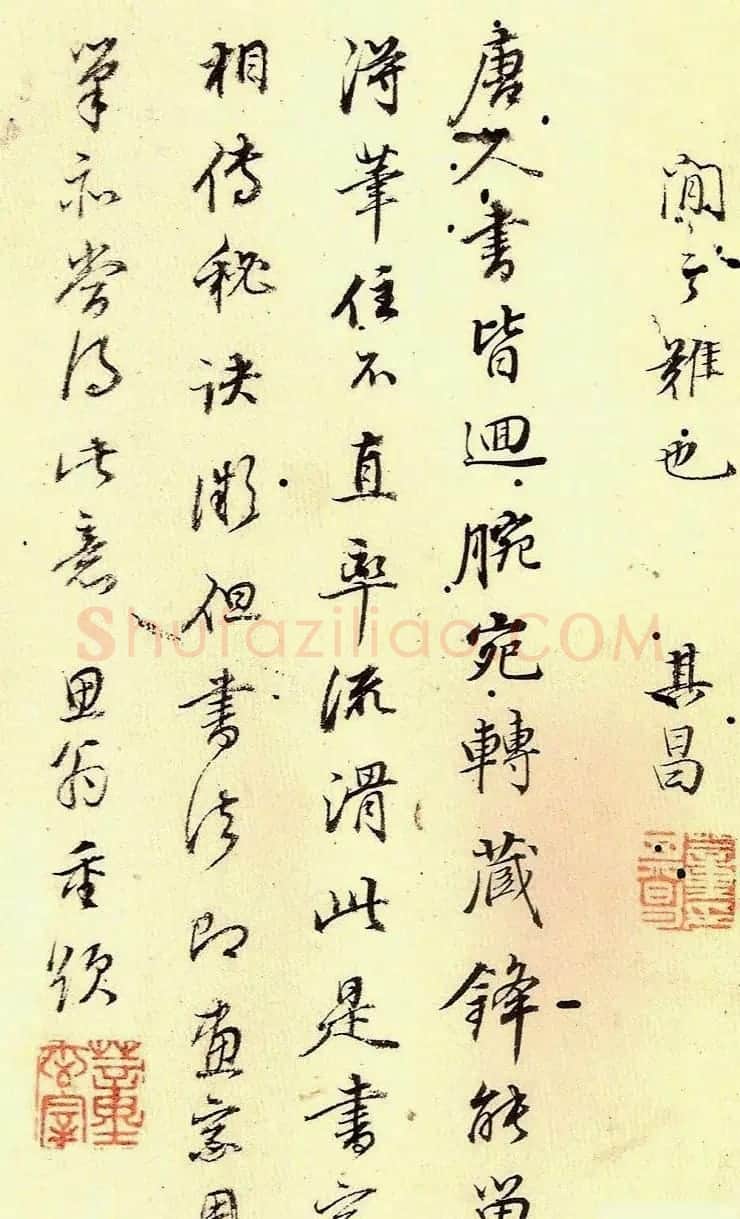 間求難也 其昌
唐人書皆迴腕宛轉藏鋒能留
得筆住不直率流滑此是書家
相傳秘訣微但書法即畫家用
筆亦當得此意 思翁重題
Shufaziliao.COM